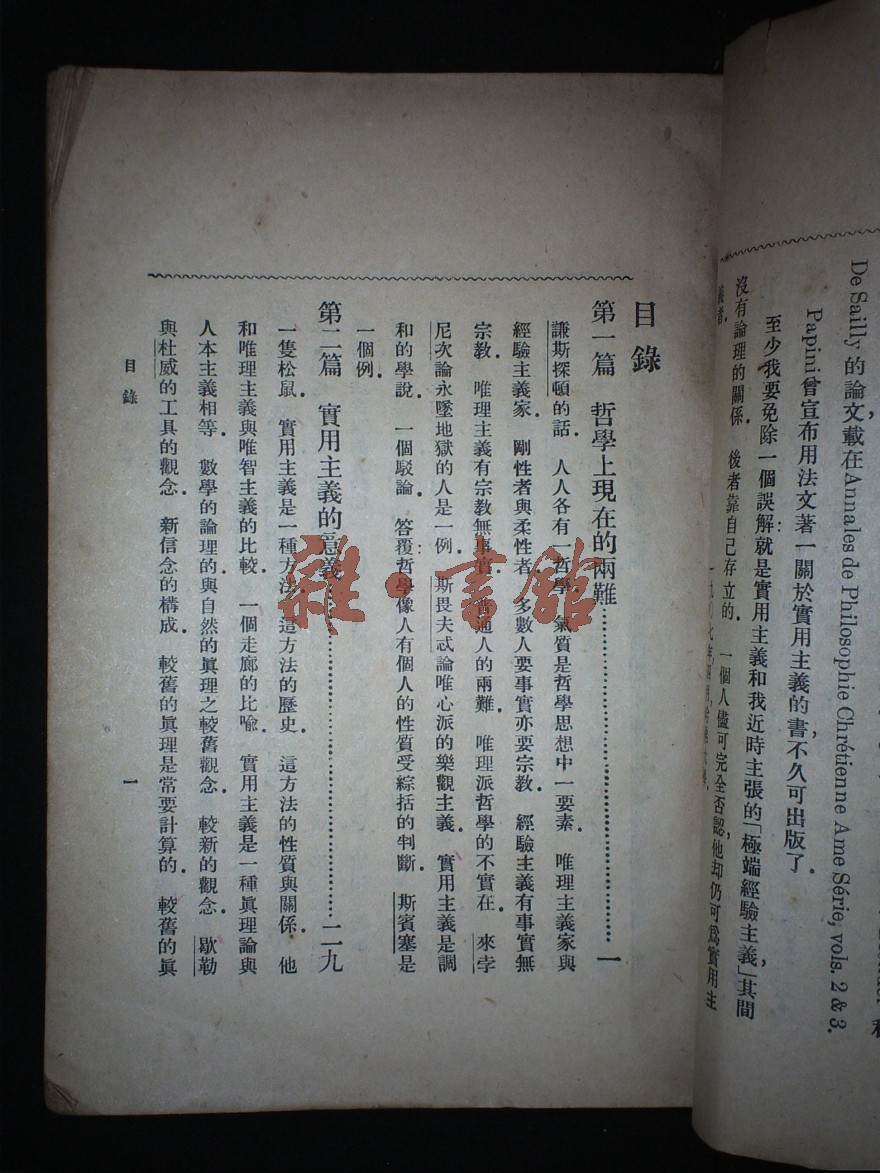 De Sailly 的論文載在Annales de Philosophie Chrétienne Ame Série, vols. 2 & 3.
Papini曾宣布用法文著一關於實用主義的書,不久可出版了.
至少我要免除一個誤解:就是實用主義和我近時主張的「極端經驗主義」,其間
沒有論理的關係. 後者靠自己存立的. 一個人儘可完全否認他,却仍可爲實用主
義者.
目錄
第一篇 哲學上現在的兩難……一
謙斯探頓的話. 人人各有一哲學. 氣質是哲學思想中一要素. 唯理主義家與
經驗主義家. 剛性者與柔性者. 多數人要事實亦要宗教. 經驗主義有事實無
宗教. 唯理主義有宗教無事實. 普通人的兩難. 唯理派哲學的不實在. 來孛
尼次論永墜地獄的人是一例. 斯畏夫忒論唯心派的樂觀主義. 實用主義是調
和的學說. 一個駁論. 答覆:哲學像人有個人的性質受綜括的判斷. 斯賓塞是
一個例.
第二篇 實用主義的意義……二九
一隻松鼠. 實用主義是一種方法. 這方法的歷史. 這方法的性質與關係. 他
和唯理主義與唯智主義的比較. 一個走廊的比喩. 實用主義是一種眞理論與
人本主義相等. 數學的論理的與自然的眞理之較舊觀念. 較新的觀念. 歇勒
與杜威的工具的觀念. 新信念的構成. 較舊的眞理是常要計算的. 較舊的眞
目錄
一
雜·書館